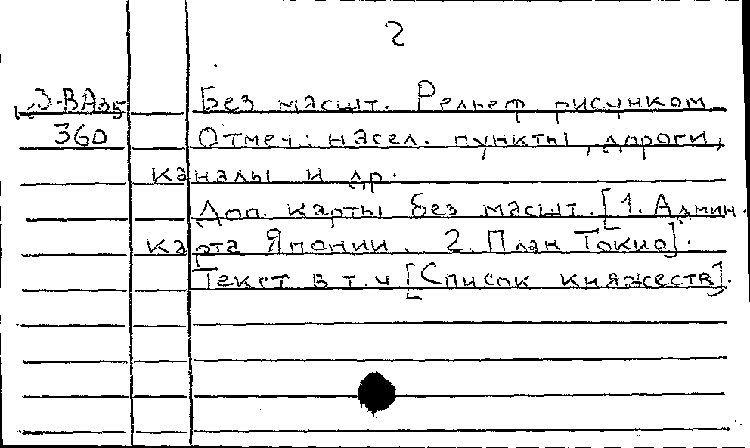 2
Э-ВА35 Без масшт. Рельеф рисунком
360 Отмеч.: насел. пункты, дороги,
каналы и др.
Доп. карты без масшт. [1. Админ.
карта Японии. 2. План Токио].
Текст в т.ч [Список княжеств].